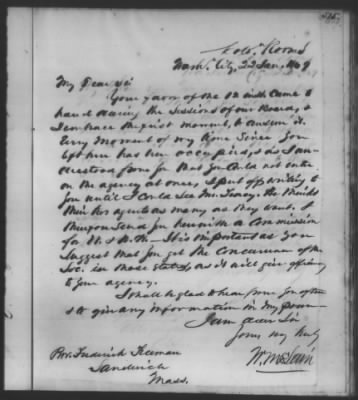 Col. Rooms
Wash. City, 22 Jan. 1849
My Dear Sir
Your favor of the 12 inst. came to
hand during the Sessions of our Board, &
I embrace the first moment, to answer it.
Every moment of my time since you
left here has been occupied, & as I un-
derstood from you that you could not enter
on the agency at once, I put off writing to
you until I could see Mr. 
 agents as many as they want. I
 send you herewith a Commission
for N. & N.H. — It is important as you
suggest that you get the concurrence of the
Soc. in those States, as it will give efficiency
to your agency.
I shall be glad to hear from you often
& to give any information in my power
I am dear Sir
Yours, very truly
W. McLain
Rev. Frederick Freeman
Sandwich
Mass.